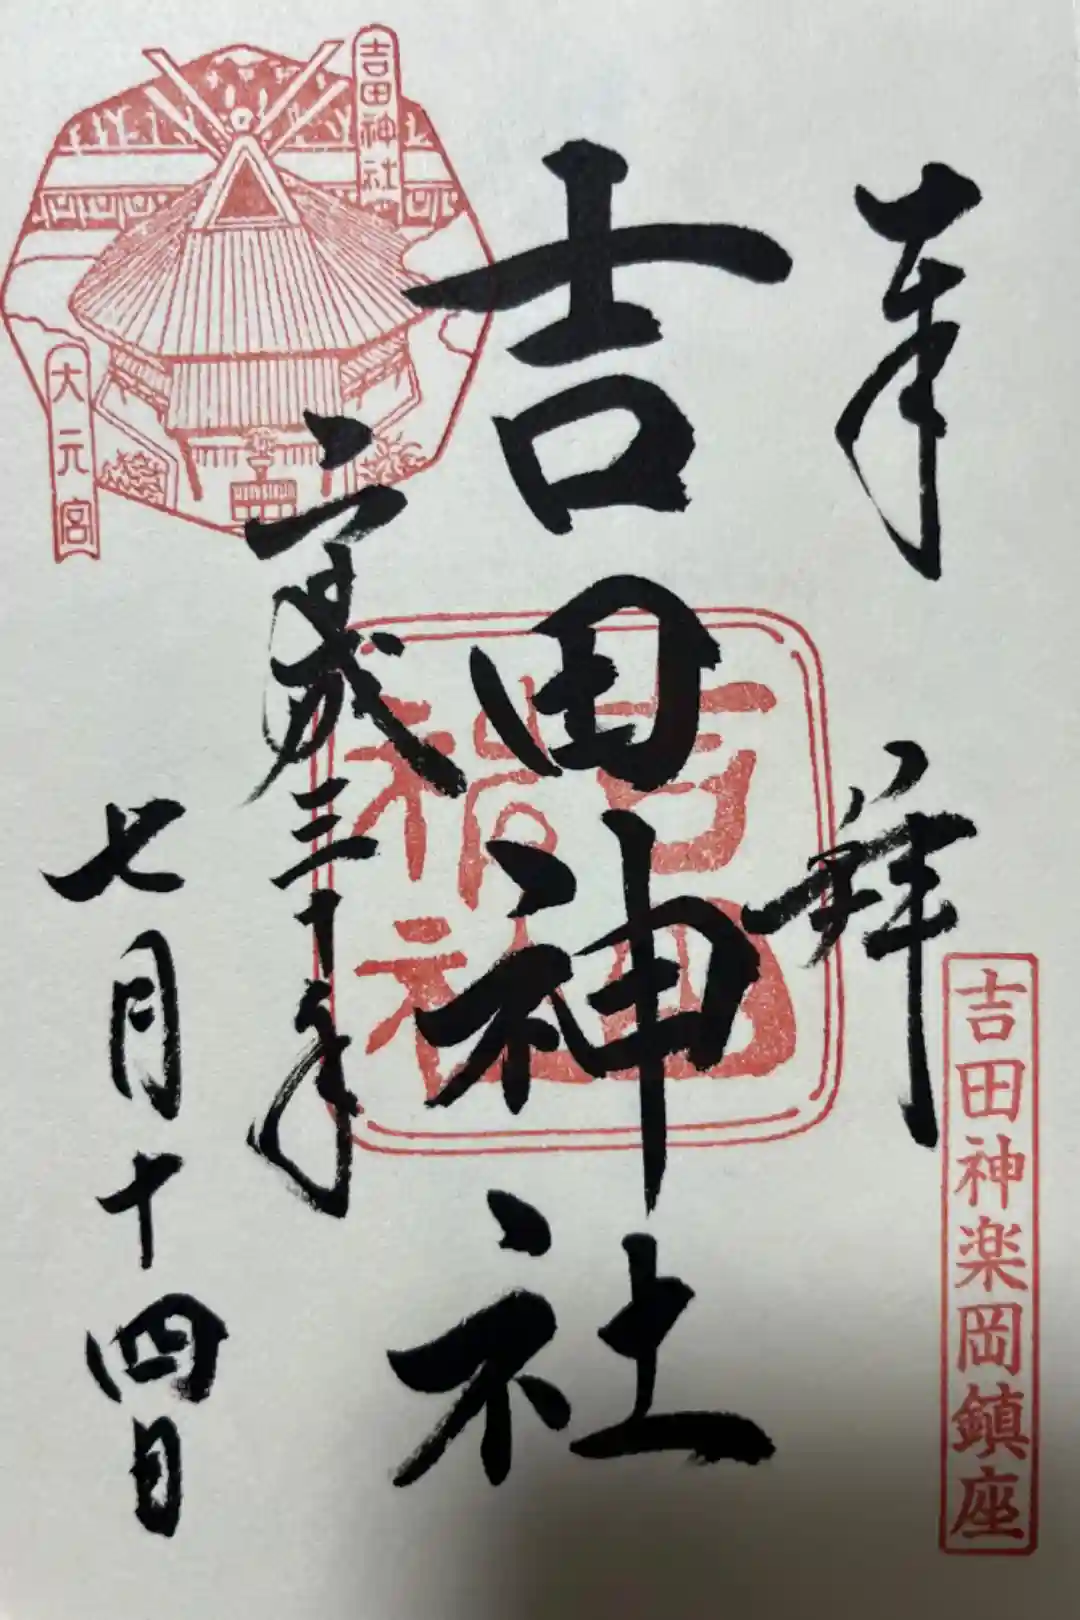 吉田神楽岡鎮座
奉拝
吉田神社
吉田神社
平成三十年
七月十四日
吉田神社
大元宮